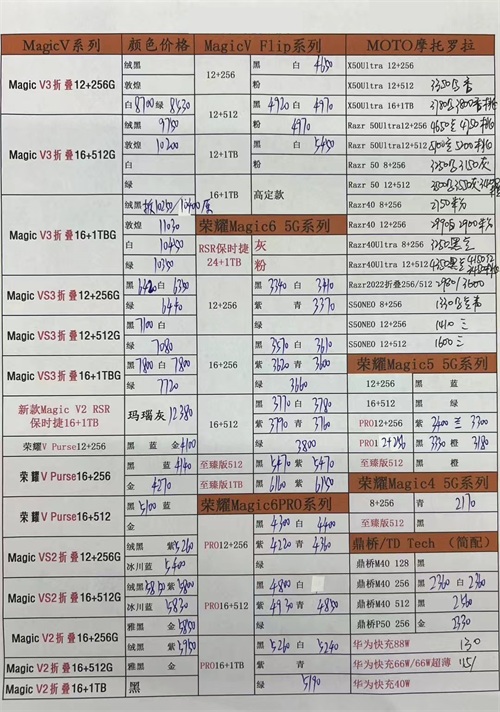 MagicV系列 颜色价格
Magic V3折叠12+256G
绒黑
敦煌
白 8700 绿 8530
Magic V3折叠16+512G
绒黑 9750
敦煌 10200
白
绿
Magic V3折叠16+1TBG
绒黑
敦煌 11030
白 10450
绿 10350
Magic VS3折叠12+256G
黑 白 6350
绿 6440
Magic VS3折叠12+512G
黑 7100 白
绿 7080
Magic VS3折叠16+1TBG
黑 7800 白 7800
绿 7720
新款Magic V2 RSR
保时捷16+1TB
玛瑙灰 12380
荣耀V Purse12+256
黑 蓝 金 4100
荣耀V Purse16+256
黑 蓝 4140
金 4270
荣耀V Purse16+512
黑 5100 蓝
金
Magic VS2折叠12+256G
绒黑 紫 5260
冰川蓝 5400
Magic VS2折叠16+512G
绒黑 5850 紫 5800
冰川蓝 5830
Magic V2折叠16+256G
雅黑 金 5850
绒黑 紫 5950
Magic V2折叠16+512G
雅黑 金
Magic V2折叠16+1TB
黑
MagicV Flip系列
12+256
黑 白 4650
粉
12+512
黑 4920 白 4970
粉 4970
12+1TB
黑 白 5450
绿
16+1TB
高定款
荣耀Magic6 5G系列
RSR保时捷
24+1TB
灰
粉
12+256
黑 3340 白 3410
紫 青 3370
绿
16+256
黑 3570 白 3610
紫 3620 青 3600
绿 3660
16+512
黑 3770 白 3780
紫 3790 青 3760
绿 3800
至臻版512
黑 5470 紫 5470
至臻版1TB
黑 6160 紫 6150
荣耀Magic6PRO系列
PRO12+256
黑 4300 白 4400
紫 4220 青 4360
绿
PRO16+512
黑 4800 白
紫 4930 青 4850
绿
PRO16+1TB
黑 5260 白 5240
紫 青
绿 5190
MOTO摩托罗拉
X50Ultra 12+256
X50Ultra 12+512
X50Ultra 16+1TB
Razr 50Ultra12+256
Razr 50Ultra12+512
Razr 50 8+256
Razr 50 12+512
Razr40 8+256
Razr40 12+256
Razr40Ultra 8+256
Razr40Ultra 12+512
Razr2022折叠256/512
S50NEO 8+256
S50NEO 12+256 1410 三
S50NEO 12+512 1600 三
荣耀Magic5 5G系列
12+256 黑 蓝
16+512 黑 绿
PRO12+256 紫 3400 兰 3300
黑 3330 橙 3180
至臻版512 黑 橙
荣耀Magic4 5G系列
8+256 青 2170
至臻版512 黑
鼎桥/TD Tech （简配）
鼎桥M40 128 黑
鼎桥M40 256 黑 2360 白 2360
鼎桥M40 512 黑 2560
鼎桥P50 256 金 2330
华为快充88W 130
华为快充66W/66W超薄
华为快充40W